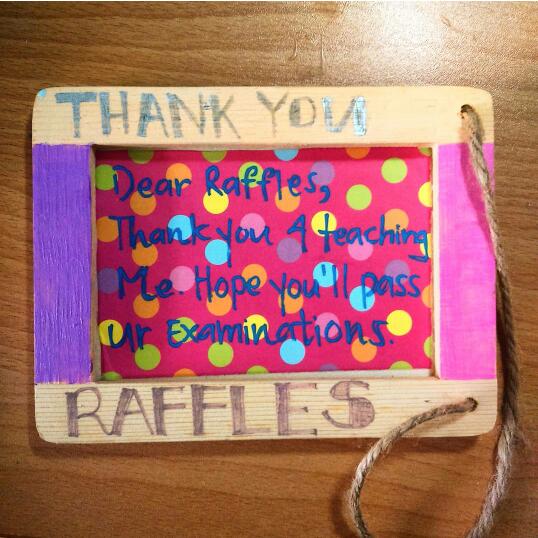 THANK YOU
Dear Raffles,
Thank you 4 teaching
Me. Hope you'll pass
ur Examinations.
RAFFLES